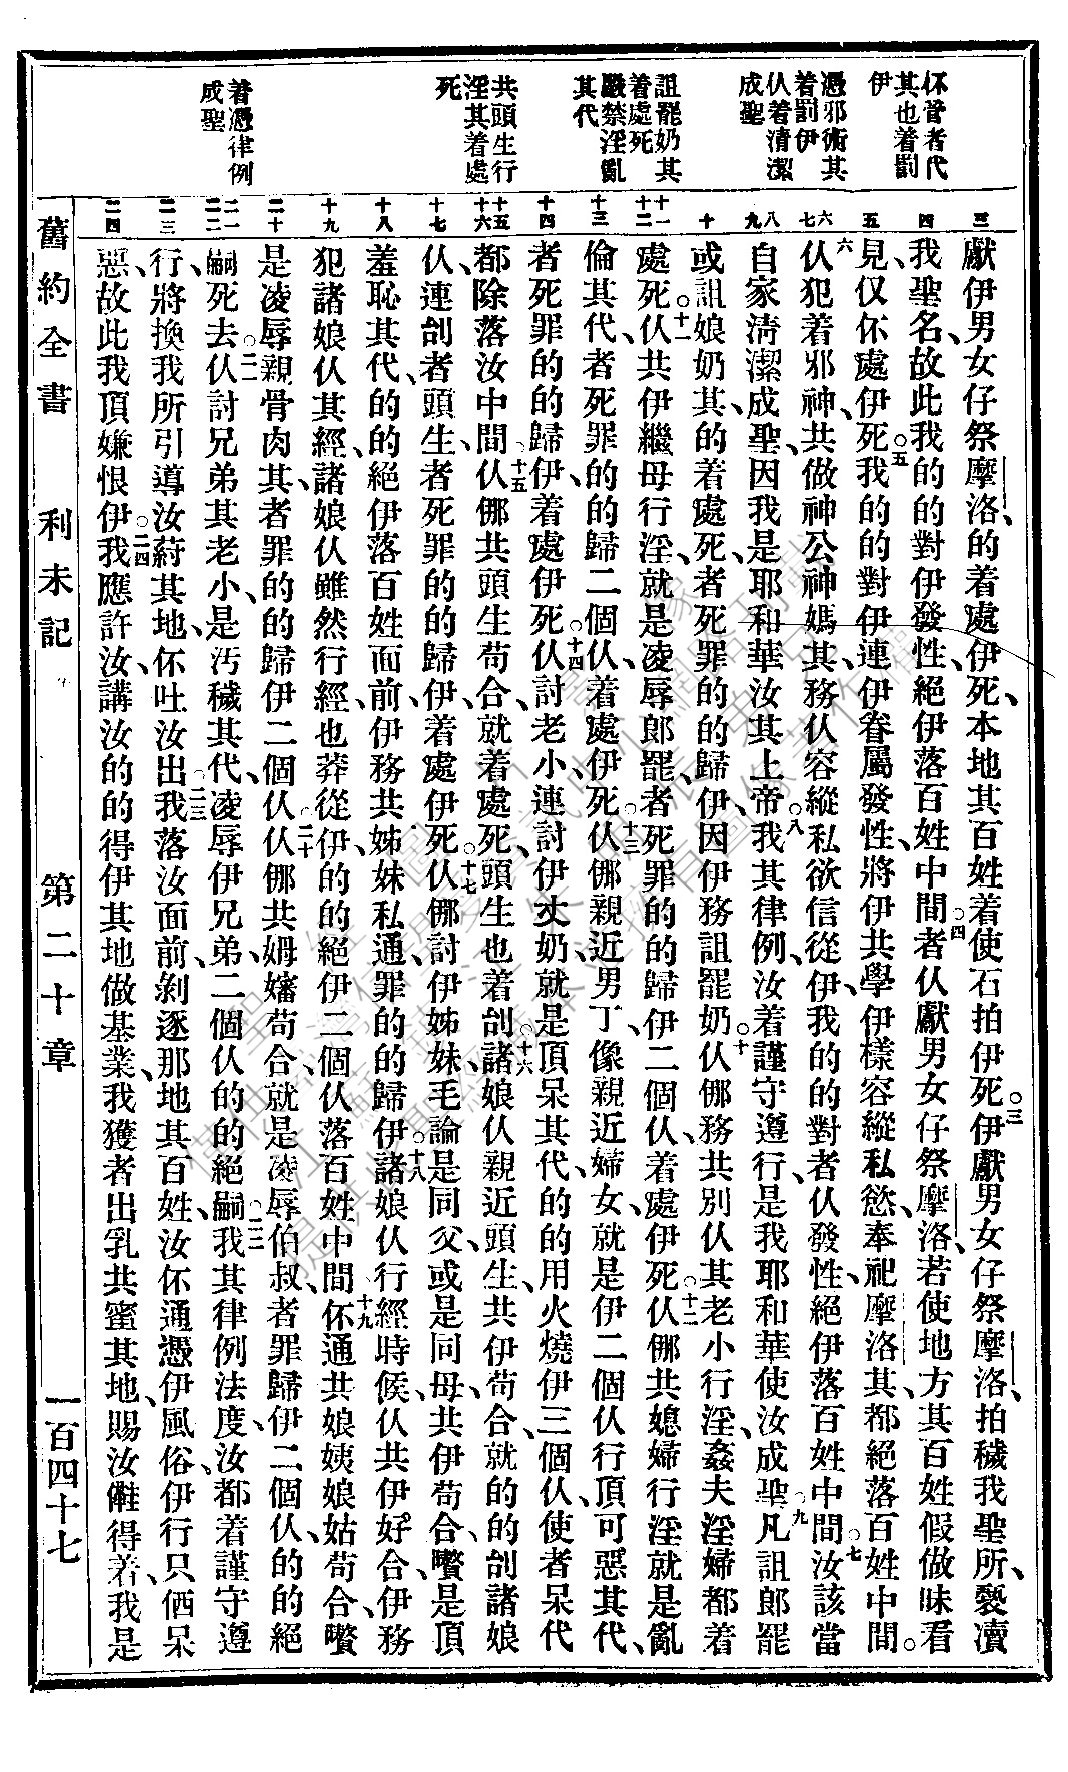 伓管者代
其也着罰
伊
憑邪術其
着罰伊
仈着清潔
成聖
詛罷奶其
着處死
嚴禁淫亂
其代
共頭生行
淫其着處
死
着憑律例
成聖
三
四
五
六
七
八
九
十
十一
十二
十三
十四
十五
十六
十七
十八
十九
二十
二一
二二
二三
二四
獻伊男女仔祭摩洛、的着處伊死、本地其百姓着使石拍伊死。三伊獻男女仔祭摩洛、拍穢我聖所、褻瀆
我聖名、故此我的的對伊發性、絕伊落百姓中間。四者仈獻男女仔祭摩洛、若使地方其百姓假做昧看
見、仅伓處伊死。五我的的對伊、連伊眷屬發性、將伊共學伊樣容縱私慾奉祀摩洛其、都絕落百姓中間。
六仈犯着邪神、共做神公神媽其、務仈容縱私欲信從伊、我的的對者仈發性、絕伊落百姓中間。七汝該當
自家淸潔成聖、因我是耶和華汝其上帝。八我其律例、汝着謹守遵行、是我耶和華使汝成聖。九凡詛郎罷
或詛娘奶其、的着處死、者死罪的的歸伊、因伊務詛罷奶。十仈㑚務共別仈其老小行淫、姦夫淫婦都着
處死。十一仈共伊繼母行淫、就是凌辱郎罷、者死罪的的歸伊二個仈、着處伊死。十二仈㑚共媳婦行淫、就是亂
倫其代、者死罪的的歸二個仈、着處伊死。十三仈㑚親近男丁、像親近婦女、就是伊二個仈行頂可惡其代、
者死罪的的歸伊、着處伊死。十四仈討老小、連討伊丈奶、就是頂呆其代、的的用火燒伊三個仈、使者呆代
都除落汝中間。十五仈㑚共頭生苟合、就着處死、頭生也着刣。十六諸娘仈親近頭生、共伊苟合、就的的刣諸娘
仈、連刣者頭生、者死罪的的歸伊、着處伊死。十七仈㑚討伊姊妹、毛論是同父、或是同母、共伊苟合、嚽是頂
羞恥其代、的的絕伊落百姓面前、伊務共姊妹私通、罪的的歸伊。十八諸娘仈行經時候、仈共伊好合、伊務
犯諸娘仈其經、諸娘仈雖然行經、也莽從伊、的的絕伊二個仈落百姓中間。十九伓通共娘姨娘姑苟合、嚽
是凌辱親骨肉其、者罪的的歸伊二個仈。二十仈㑚共姆嬸苟合、就是凌辱伯叔、者罪歸伊二個仈、的的絕
嗣死去。二一仈討兄弟其老小、是汚穢其代、凌辱伊兄弟、二個仈的的絕嗣。二二我其律例法度、汝都着謹守遵
行、將換我所引導汝蒔其地、伓吐汝出。二三我落汝面前、剝逐那地其百姓、汝伓通憑伊風俗、伊行只儕呆
惡、故此我頂嫌恨伊。二四我應許汝、講汝的的得伊其地做基業、我獲者出乳共蜜其地、賜汝儺得着、我是
舊約全書 利未記 第二十章 一百四十七